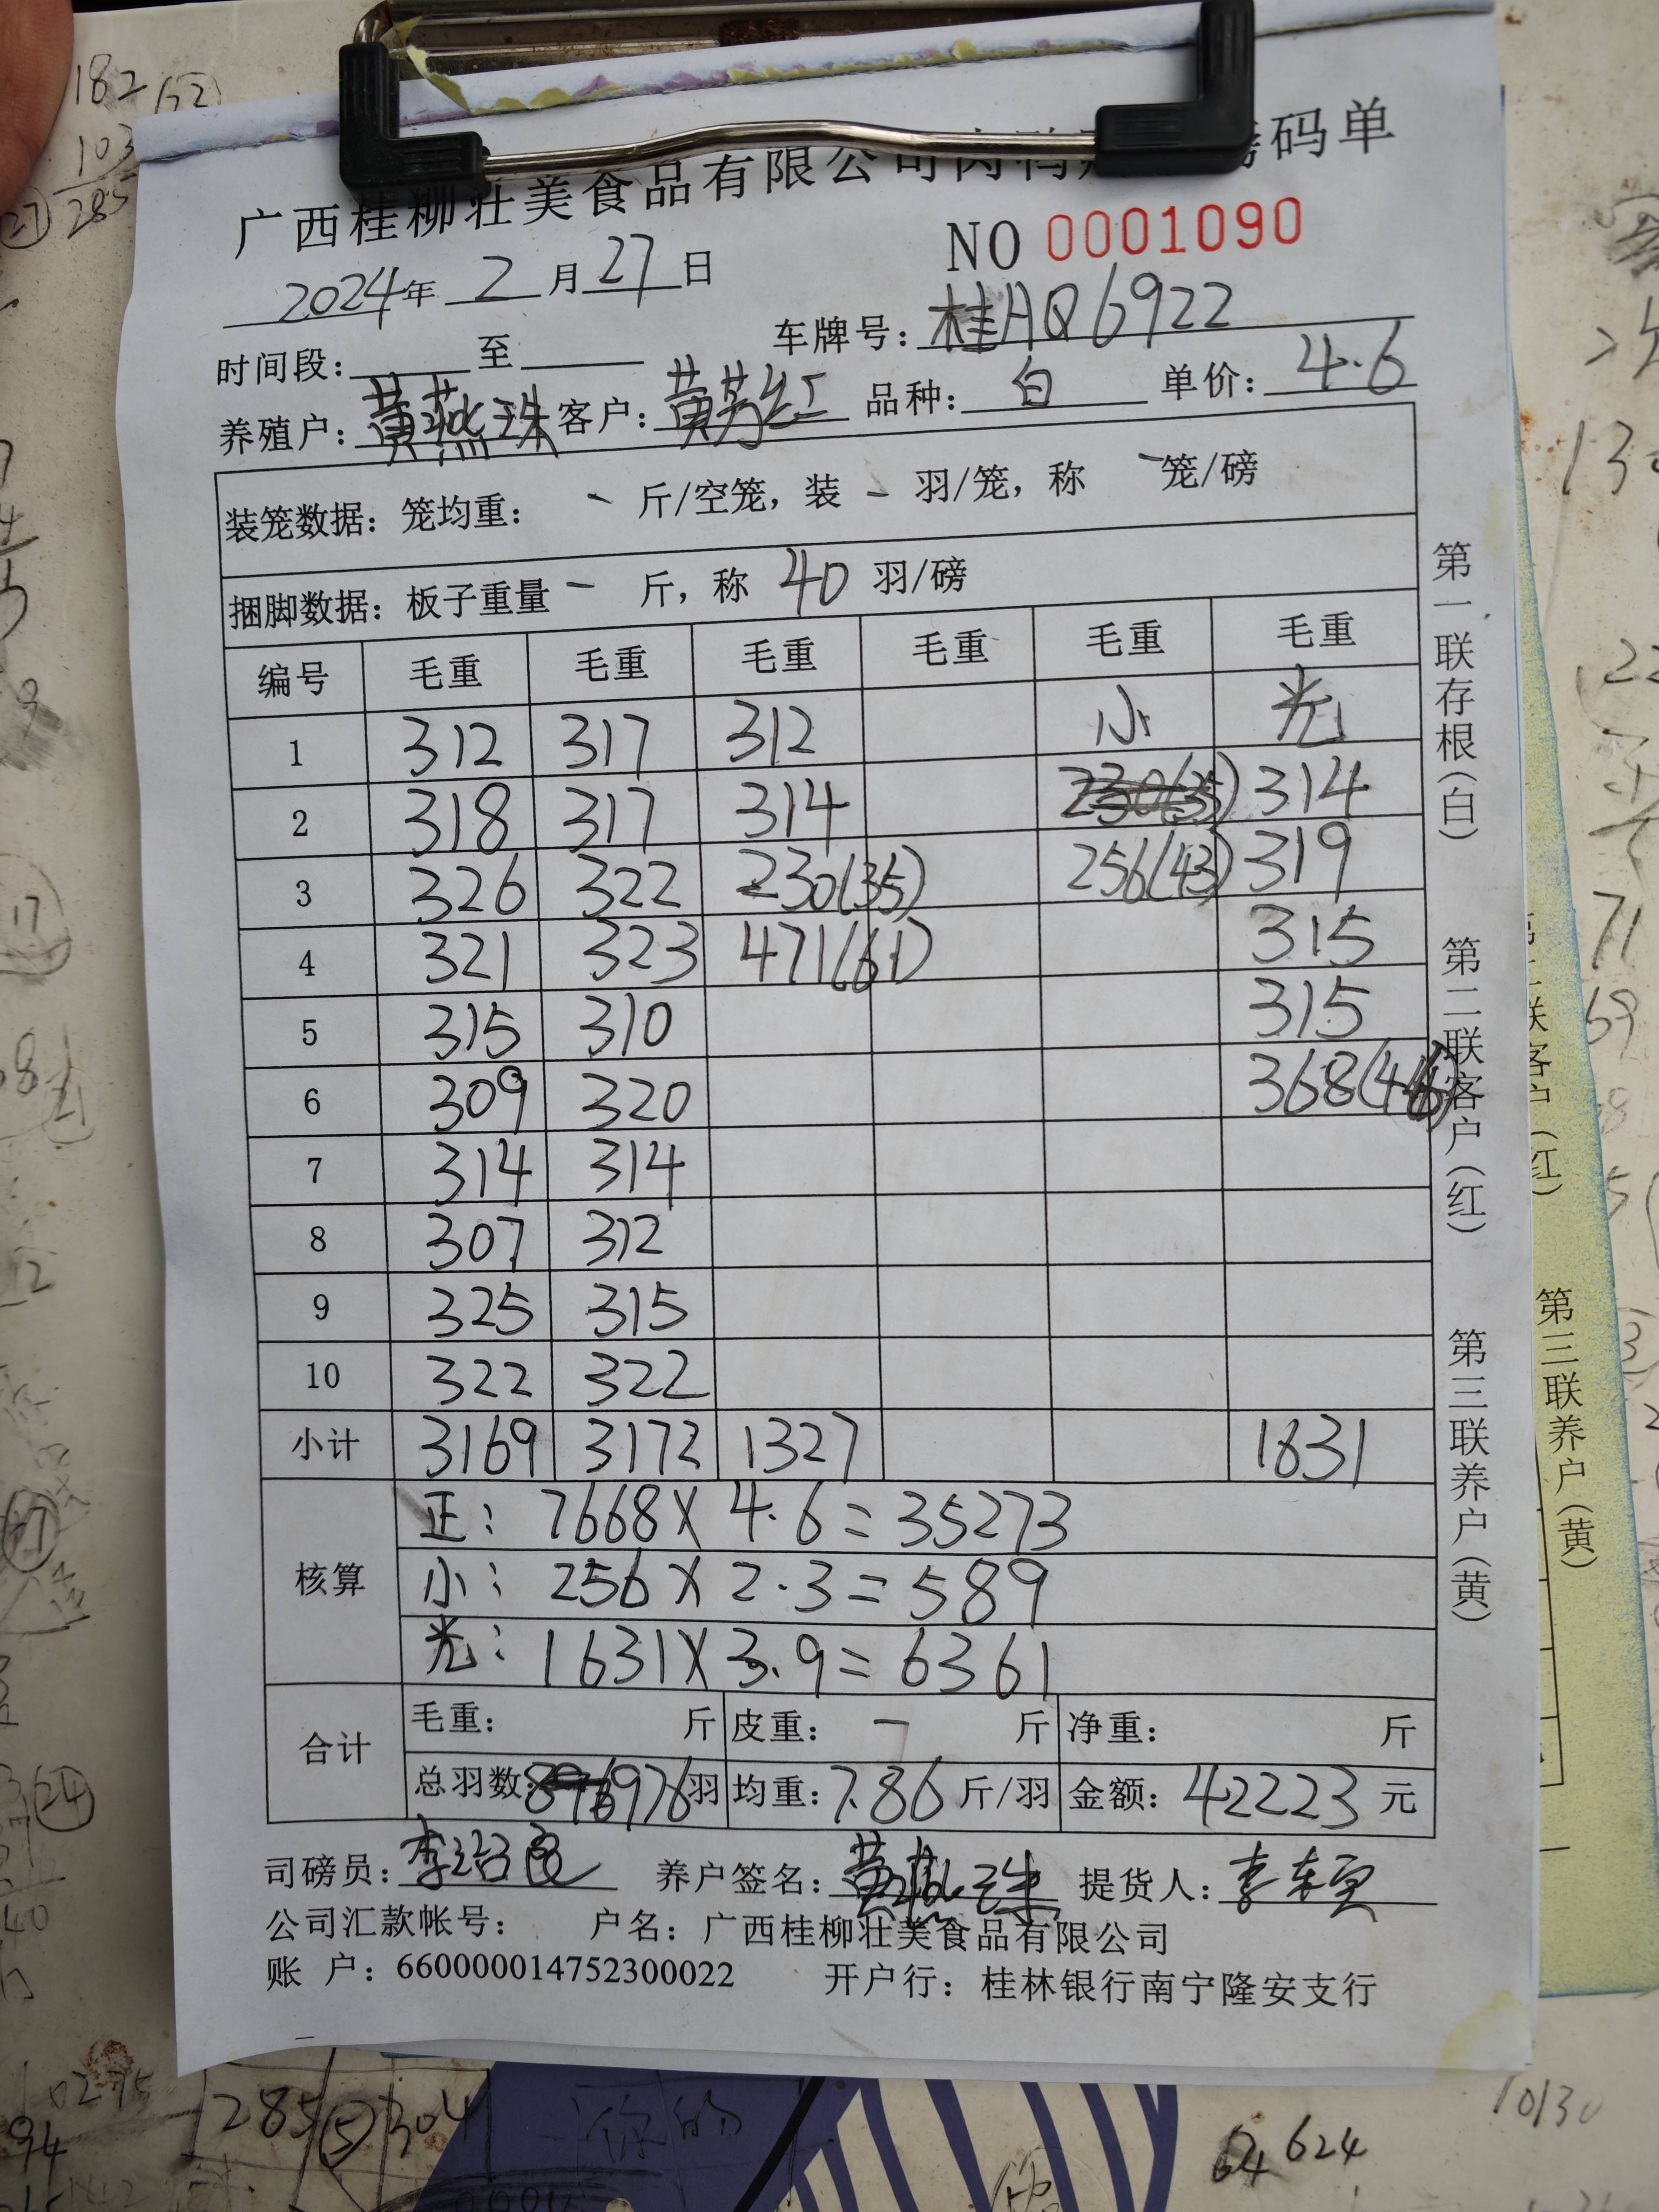 广西桂柳壮美食品有限公司肉鸭 码单
NO 0001090
2024年 2 月 27 日
时间段: 至 车牌号: 桂AQ6922
养殖户: 黄燕珠 客户: 黄芳红 品种: 白 单价: 4.6
装笼数据: 笼均重: - 斤/空笼, 装 - 羽/笼, 称 - 笼/磅
捆脚数据: 板子重量 - 斤, 称 40 羽/磅
编号 毛重 毛重 毛重 毛重 毛重 毛重
1 312 317 312 小 光
2 318 317 314 230(35) 314
3 326 322 230(35) 256(43) 319
4 321 323 471(61) 315
5 315 310 315
6 309 320 368(46)
7 314 314
8 307 312
9 325 315
10 322 322
小计 3169 3172 1327 1631
核算
正: 7668X 4.6=35273
小: 256X 2.3=589
光: 1631X3.9=6361
合计
毛重: 斤 皮重: - 斤 净重: 斤
总羽数: 976羽 均重: 7.86 斤/羽 金额: 42223 元
司磅员: 李治良 养户签名: 黄燕珠 提货人: 李
公司汇款帐号: 户名: 广西桂柳壮美食品有限公司
账 户: 660000014752300022 开户行: 桂林银行南宁隆安支行
第一联存根(白)
第二联客户(红)
第三联养户(黄)
联客户(红)
第三联养户(黄)
182
103
285
10275
94
285 5 304
64 624
10130
17
71
24